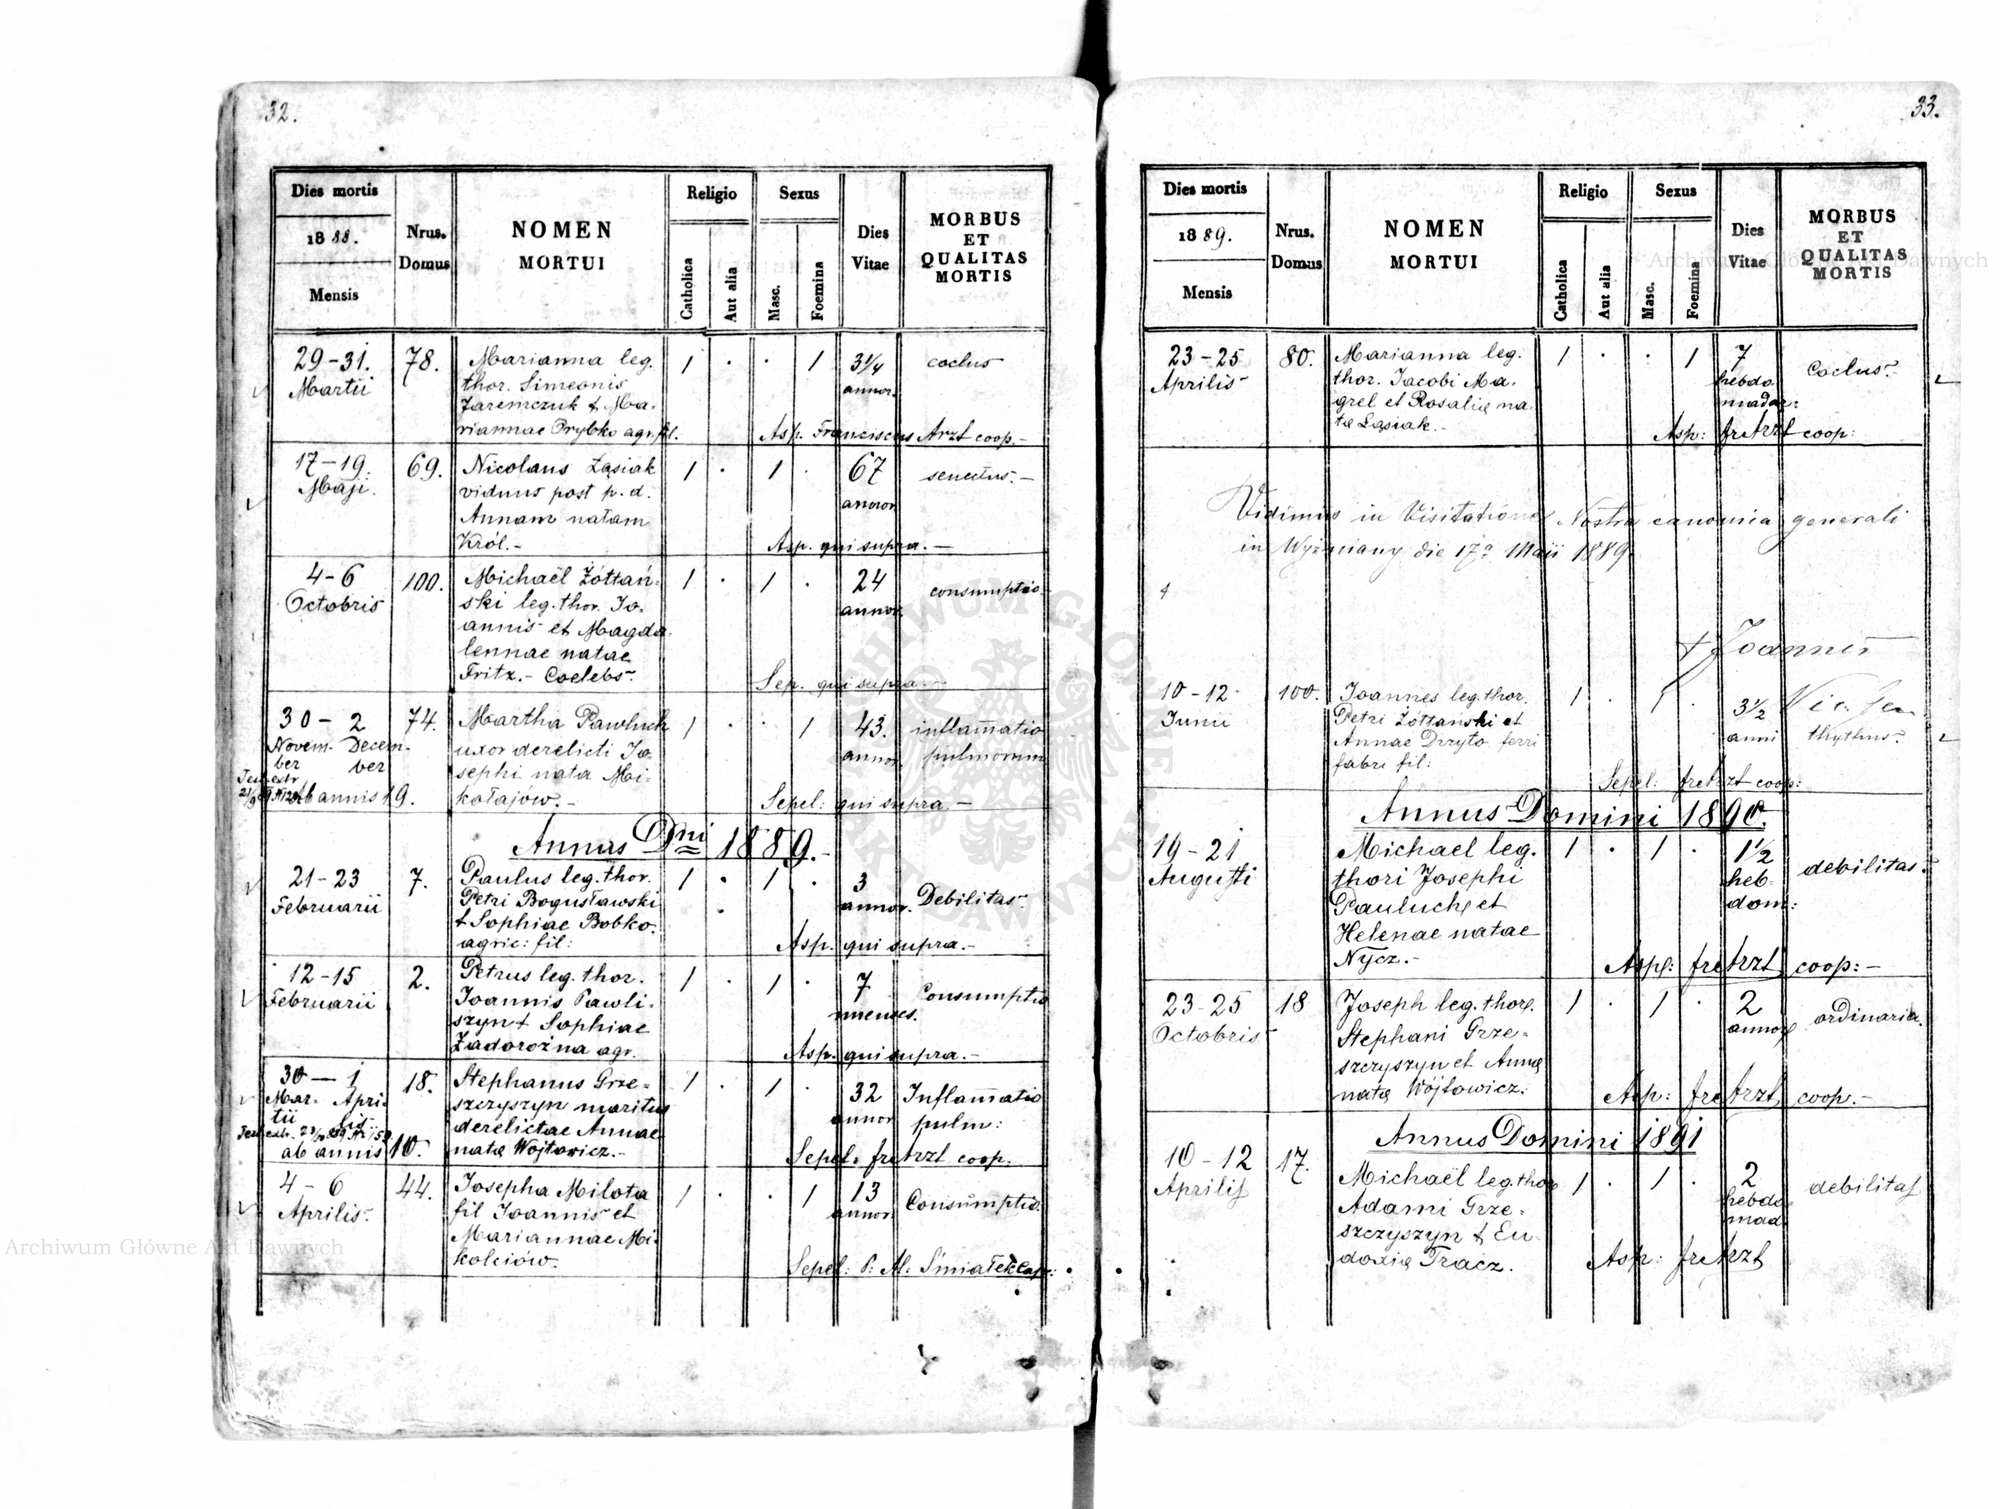 32.
Dies mortis
1888.
Mensis
Nrus. Domus
NOMEN MORTUI
Religio
Catholica
Aut alia
Sexus
Masc.
Foemina
Dies Vitae
MORBUS ET QUALITAS MORTIS
29-31. 78. Marianna leg. 1 . . 1 3 1/4 coclus
Martii thor. Simeonis annor.
Jaremczuk & Ma-
riannae Prybko agr. fil. Asp. Franciscus Arzt coop.-
17-19. 69. Nicolaus Ląsiak 1 . 1 . 67 senectus.-
Maji. viduus post p. d. annor.
Annam natam
Król.- Asp. qui supra.-
4-6 100. Michaël Żółtań- 1 . 1 . 24 consumptio
Octobris ski leg. thor. Jo- annor.
annis et Magda-
lennae natae
Fritz.- Coelebs. Sep. qui supra-
30-2 74. Martha Pawluch 1 . . 1 43. inflamatio
Novem- Decem- uxor derelicti Jo- annor. pulmorum
ber ber sephi nata Mi-
ab annis 19. kołajów.- Sepel: qui supra-
Annus Dni 1889.-
21-23 7. Paulus leg. thor. 1 . 1 . 3 Debilitas
Februarii Petri Bogusławski annor.
& Sophiae Bobko.
agric: fil: Asp. qui supra.-
12-15 2. Petrus leg. thor. 1 . 1 . 7 Consumptio
Februarii Joannis Pawli- menses.
szyn & Sophiae
Zadorożna agr. Asp. qui supra.-
30-1 18. Stephanus Grze- 1 . 1 . 32 Inflamatio
Mar- Apri- szczyszyn maritus annor. pulm:
tii lis derelictae Annae
ab annis 10. natę Wojtowicz.- Sepel. fr Arzt coop.
4-6 44. Josepha Milota 1 . . 1 13 Consumptio.
Aprilis. fil Joannis et annor.
Mariannae Mi-
kolciów. Sepel: P: Al. Śmiałek
33.
Dies mortis
1889.
Mensis
Nrus. Domus
NOMEN MORTUI
Religio
Catholica
Aut alia
Sexus
Masc.
Foemina
Dies Vitae
MORBUS ET QUALITAS MORTIS
23-25 80. Marianna leg. 1 . . 1 7 Coclus.
Aprilis thor. Jacobi Ma- hebdo-
grel et Rosalię na- madar:
tę Ląsiak.- Asp: fr Arzt coop:
Vidimus in Visitatione Nostra canonica generali
in Wyżniany die 17a Maii 1889
† Joannes
Vic. Gen
10-12 100. Joannes leg. thor. 1 . 1 . 3 1/2
Junii Petri Żółtański et anni thythus.
Annae Drzyto ferri
fabri fil: Sepel: fr Arzt coop:
Annus Domini 1890.
19-21 Michael leg. 1 . 1 . 1 1/2 debilitas.
Augusti thori Josephi heb-
Pauluch et dom:
Helenae natae
Nycz.- Asp: fr Arzt coop:-
23-25 18 Joseph leg. thor. 1 . 1 . 2 ordinaria.
Octobris Stephani Grze- annor
szczyszyn et Annę
natę Wójtowicz: Asp: fr Arzt coop.-
Annus Domini 1891
10-12 17. Michaël leg. thor 1 . 1 . 2 debilitas
Aprilis Adami Grze- hebdo-
szczyszyn & Eu- mad.
doxię Tracz. Asp: fr Arzt
Archiwum Główne Akt Dawnych
Archiwum Główne Akt Dawnych
ARCHIWUM GŁÓWNE AKT DAWNYCH